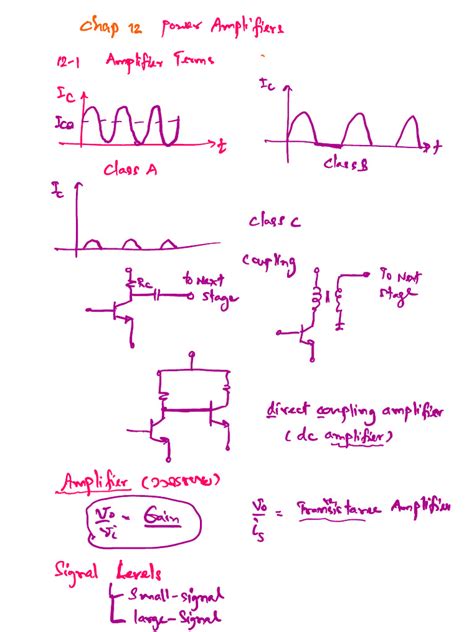 Chap 12 Power Amplifiers
12-1 Amplifier Terms
Ic
ICQ
t
Class A
Ic
t
Class B
Ic
Class C
Coupling
Rc
to Next
stage
To Next
stage
direct coupling amplifier
(dc amplifier)
Amplifier (วงจรขยาย)
vo/vi = Gain
vo/is = Amplifier
Signal Levels
Small-signal
large-signal